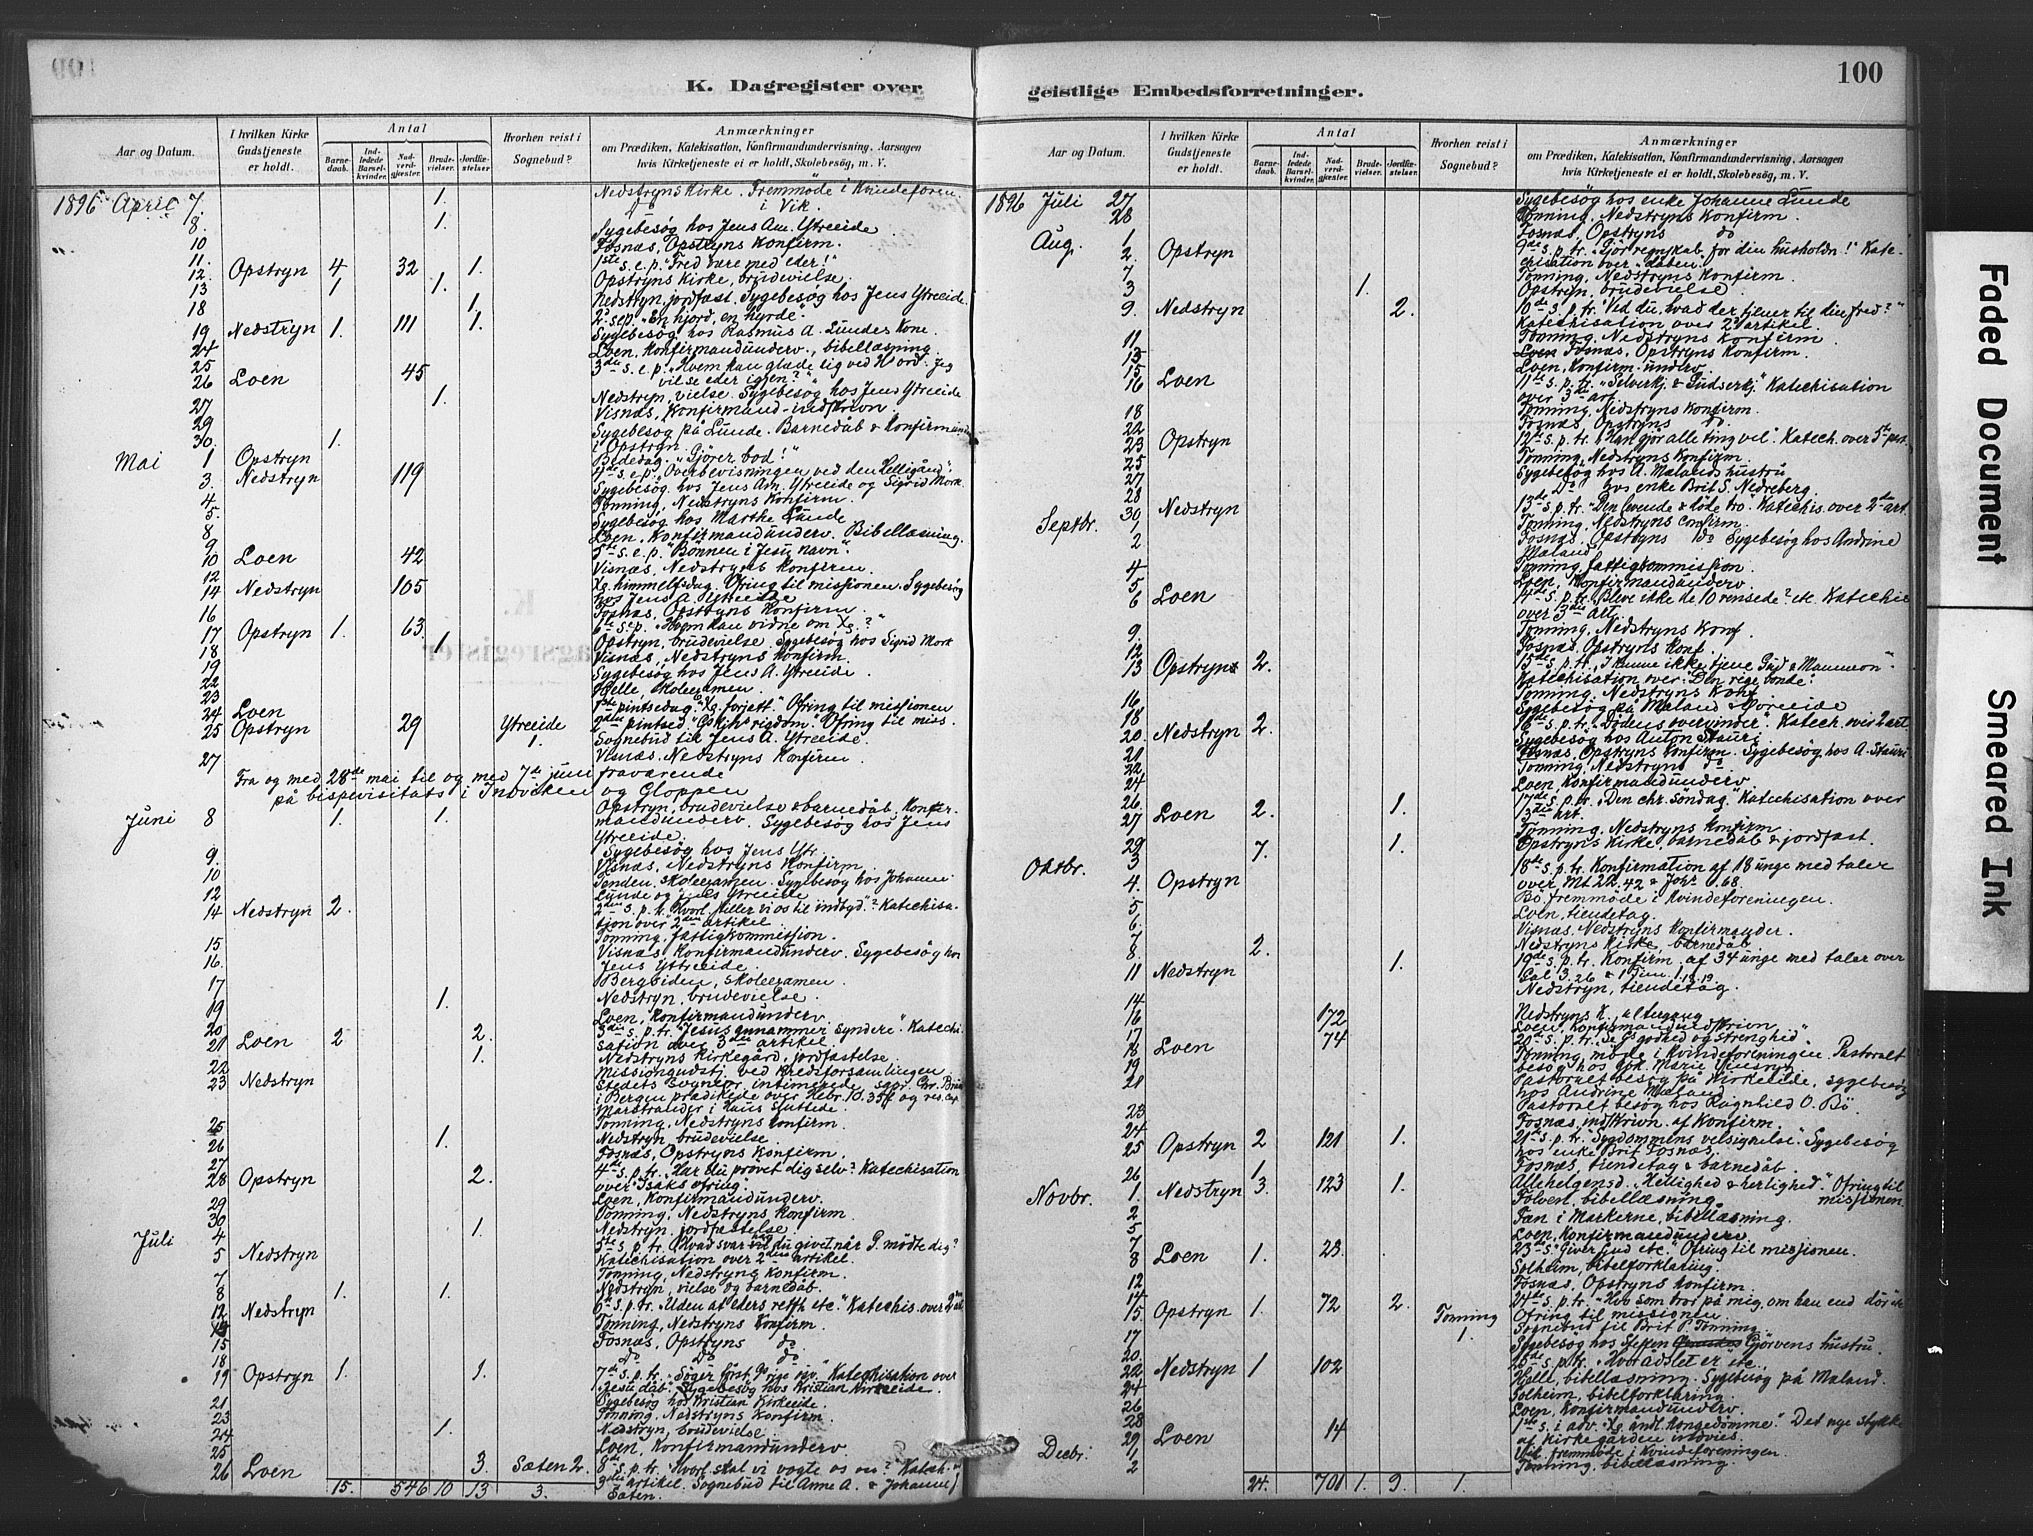 100
K. Dagregister over
geistlige Embedsforretninger.
Aar og Datum.
I hvilken Kirke Gudstjeneste er holdt.
Antal
Barnedaab.
Indledede Barselkvinder.
Nadverdgjester.
Brudevielser.
Jordfæstelser.
Hvorhen reist i Sognebud?
Anmærkninger
om Prædiken, Katekisation, Konfirmandundervisning, Aarsagen
hvis Kirketjeneste ei er holdt, Skolebesög, m. V.
1896 April 7. 1. Nedstryns Kirke. Fremmøde i Kvindeforen.
i Vik.
8. 1. Sygebesøg hos Jens Am. Ytreeide
10 Fosnæs, Opstryns Konfirm.
11.
12. Opstryn 4 32 1. 1ste s. e. p. "Fred være med eder!"
13 1 1. Opstryns Kirke, brudevielse.
18 1. Nedstryn, jordfæst. Sygebesøg hos Jens Ytreeide.
19 Nedstryn 1. 111 1. "En hjord, en hyrde".
24 Sygebesøg hos Rasmus A. Lundes Kone.
25 Loen, Konfirmandunderv., bibellæsning.
26 Loen 45 3die s. e. p. "Hvem kan glæde sig ved H. ord: Jeg
vil se eder igjen?"
27 1. Nedstryn, vielse. Sygebesøg hos Jens Ytreeide
29 Visnæs, Konfirmand-indskrivn.
30. 1. Sygebesøg på Lunde. Barnedåb & Konfirmandun
i Opstryn.
Mai 1 Opstryn Bededag. "Gjører bod!"
3. Nedstryn 119 4de s. e. p. "Overbevisningen ved den Helligånd".
4. Sygebesøg hos Jens Am. Ytreeide og Sigrid Mork.
5. Tonning, Nedstryns Konfirm.
8 Sygebesøg hos Marthe Lunde
9 Loen, Konfirmandunderv. Bibellæsning.
10 Loen 42 5te s. e. p. "Bønnen i Jesu navn".
12 Visnæs, Nedstryns Konfirm.
14 Nedstryn 105 Xs. himmelfsdag. Ofring til missionen. Sygebesøg
hos Jens A. Ytreeide
16 Fosnæs, Opstryns Konfirm.
17 Opstryn 1. 63. 6te s. e. p. "Hvem kan vidne om Xs.?"
18 1 Opstryn, brudevielse. Sygebesøg hos Sigrid Mork
19 Visnæs, Nedstryns Konfirm.
22 Sygebesøg hos Jens A. Ytreeide.
23 Helle, skoleexamen.
24 Loen 1ste pintsedag. Ofring til missionen
25 Opstryn 29 Ytreeide 1. 2den pintsed. Ofring til miss.
Sognebud til Jens A. Ytreeide.
27 Visnæs, Nedstryns Konfirm.
Fra og med 28de mai til og med 7de juni fraværende
på bispevisitats i Indviken og Gloppen
Juni 8 1. 1. Opstryn, brudevielse & barnedåb, Konfir-
mandunderv. Sygebesøg hos Jens
Ytreeide.
9. Sygebesøg hos Jens Ytr.
10 Visnæs, Nedstryns Konfirm.
12 Tenden, skoleexamen. Sygebesøg hos Johanne
Lunde og Jens Ytreeide
14 Nedstryn 2. 2den s. p. tr. Katechisa-
tion over 2den artikel
15 Tonning, fattigkommission.
16. Visnæs, Konfirmandunderv. Sygebesøg hos
Jens Ytreeide.
17 Bergsiden, skoleexamen.
19 1. Nedstryn, brudevielse.
20 Loen, Konfirmandunderv.
21 Loen 2 2. 3die s. p. tr. "Jesus annammer syndere". Katechi-
sation over 3die artikel.
22 1. Nedstryns Kirkegård, jordfæstelse.
23 Nedstryn Missionsgudstj. ved Kredsforsamlingen
i Bergen prædikede over Hebr. 10. 35 og
Marstrander i Haus sluttede.
25 Tonning, Nedstryns Konfirm.
26 1. Nedstryn, brudevielse.
27 Fosnæs, Opstryns Konfirm.
28 Opstryn 2. 4de s. p. tr. "Har du prøvet dig selv?" Katechisation
over "Isaks ofring".
29 Loen, Konfirmandunderv.
30 Tonning, Nedstryns Konfirm.
Juli 4 1. Nedstryn, jordfæstelse.
5 Nedstryn 5te s. p. tr. "Hvad svar har du givet når G. mødte dig?"
Katechisation over 2den artikel.
7 Tonning, Nedstryns Konfirm.
8 1. 1. Nedstryn, vielse og barnedåb.
12 Nedstryn 6te s. p. tr. "Uden at eders retfh. etc." Katechis. over 2den art
Tonning, Nedstryns Konfirm.
15 Fosnæs, Opstryns do
18 Do Do do
19 Opstryn 1. 1. 7de s. p. tr. "Søger først Gs. rige" Katechisation over
Jesu dåb. Sygebesøg hos Kristian Kirkeeide.
21 Sygebesøg hos Kristian Kirkeeide.
23 Tonning, Nedstryns Konfirm.
24 1. Nedstryn, brudevielse.
25 Loen, Konfirmandunderv.
26 Loen 3. Sæten 2. 8de s. p. tr. "Hvorl. skal vi vogte os" Katech.
3die artikel. Sognebud til Anne A. & Johanne J.
Sæten.
15. 546 10 13 3.
Aar og Datum.
I hvilken Kirke Gudstjeneste er holdt.
Antal
Barnedaab.
Indledede Barselkvinder.
Nadverdgjester.
Brudevielser.
Jordfæstelser.
Hvorhen reist i Sognebud?
Anmærkninger
om Prædiken, Katekisation, Konfirmandundervisning, Aarsagen
hvis Kirketjeneste ei er holdt, Skolebesög, m. V.
1896 Juli 27 Sygebesøg hos enke Johanne Lunde
28 Tonning, Nedstryns Konfirm.
Aug. 1. Fosnæs, Opstryns do
2. Opstryn 9de s. p. tr. "Gjør regnskab for din husholdn!" Kate-
chisation over dåben.
7 Tonning, Nedstryns Konfirm.
3 1. Opstryn, brudevielse.
9. Nedstryn 2. 10de s. p. tr. "Ved du, hvad der tjener til din fred?"
Katechisation over 2den artikel.
11 Tonning, Nedstryns Konfirm.
13 Fosnæs, Opstryns Konfirm.
15 Loen, Konfirm.underv.
16 Loen 11te s. p. tr. Katechisation
over 3die art.
18 Tonning, Nedstryns Konfirm.
22 Fosnæs, Opstryns do.
23 Opstryn 12te s. p. tr. "Han gjør alle ting vel". Katech. over 5te
25 Tonning, Nedstryns Konfirm.
27 Sygebesøg hos A. Mælands hustru
28 Do hos enke Brit S. Nedreberg.
30 Nedstryn 13de s. p. tr. "Den levende & døde tro". Katechis. over 2den art.
Septbr. 1 Tonning, Nedstryns Confirm.
2 Fosnæs, Opstryns do Sygebesøg hos Andrine
Mæland
4 Tonning, fattigkommission.
5 Loen, Konfirmandunderv.
6 Loen 14de s. p. tr. "Bleve ikke de 10 rensede?" etc. Katechis.
over 3die art.
9. Tonning, Nedstryns Konf.
12 Fosnæs, Opstryns Konf.
13 Opstryn 2. 15de s. p. tr. "I kunne ikke tjene Gud & Mammon".
Katechisation over "Den rige bonde".
16 Tonning, Nedstryns Konf
18 Sygebesøg på Mæland
20 Nedstryn 2. 16de s. p. tr. "Dødens overvinder". Katech. over 2 art.
Sygebesøg hos Anton Stauri
21 Fosnæs, Opstryns Konfirm. Sygebesøg hos A. Stauri
22 Tonning, Nedstryns do
24 Loen, Konfirmandunderv.
26
27 Loen 2. 1. 17de s. p. tr. "Den chr. søndag." Katechisation over
3die art.
29 Tonning, Nedstryns Konfirm
Oktbr. 3 7. 1. Opstryns Kirke, barnedåb & jordfæst.
4. Opstryn 18de s. p. tr. Konfirmation af 18 unge med taler
over Mt 22. 42 & Joh. 6. 68.
5 Bø, fremmøde i Kvindeforeningen.
6. Loen, tiendetag.
7 Visnæs, Nedstryns Konfirmander.
8. 2. Nedstryns Kirke, barnedåb.
11 Nedstryn 1. 19de s. p. tr. Konfirm. af 34 unge med taler over
Gal 3. 26 & 1 Tim. 1. 18. 19.
14 Nedstryn, tiendetag.
16 172 Nedstryns K., altergang
17 74 Loen, Konfirmandindskrivn.
18 Loen 20de s. p. tr. "Se Gs godhed og strenghed".
19 Tonning, møde i Kvindeforeningen. Pastoralt
besøg hos
21 Pastoralt besøg på Kirkeeide, sygebesøg
hos Andrine Mæland.
23 Pastoralt besøg hos Ragnhild O. Bø.
24 Fosnæs, indskrivn. af Konfirm.
25 Opstryn 2 121 1. 21de s. p. tr. "Sygdommens velsignelse". Sygebesøg
hos enke Brit Fosnæs.
26 1. Fosnæs, tiendetag & barnedåb.
Novbr. 1. Nedstryn 3. 123 1. Allehelgensd. "Hellighed & herlighed." Ofring til
missionen.
2 Folven, bibellæsning
5 Fæn i Markerne, bibellæsning.
7 Loen, Konfirmandunderv.
8 Loen 1. 23. 23de s. "Giver Gud etc." Ofring til missionen.
Solheim, bibelforklaring.
12 Fosnæs, Opstryns Konfirm.
14
15 Opstryn 1. 72 2. 24de s. p. tr. "Hvo som tror på mig, om han end dør"
Ofring til missionen
17 Tonning 1. Sognebud til Brit P. Tonning.
20 Sygebesøg hos Steffen Gjørvens hustru.
22 Nedstryn 1 102 25de s. p. tr. "Hvor ådslet er" etc.
24 Helle, bibellæsning. Sygebesøg på Mæland.
26 Solheim, bibelforklaring.
28 Loen, Konfirmandunderv.
29 Loen 14 1ste s. i adv. "Xs. åndl. kongedømme." Det nye stykke
af kirkegården indvies.
Decbr. 1 fremmøde i Kvindeforeningen.
2 Tonning, bibellæsning.
24. 701 1. 9. 1.
Faded Document
Smeared Ink